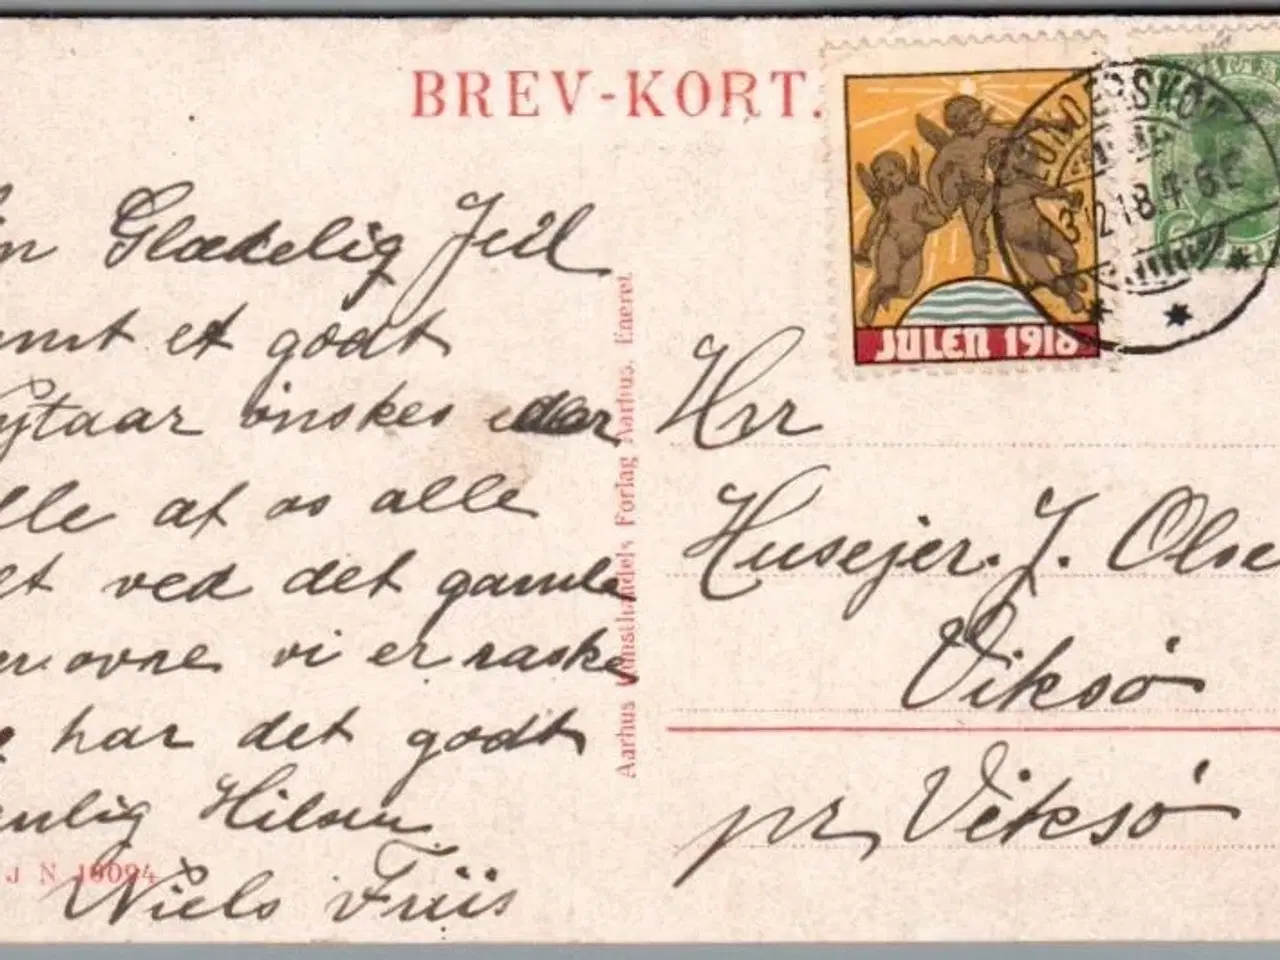 BREV-KORT.
JULEN 1918
n Glædelig Jul
mt et godt
ytaar ønskes eder
lle af os alle
et ved det gamle
er ovre vi er raske
har det godt
enlig Hilsen
Niels Friis
J N 19094
Aarhus Kunsthandels Forlag Aarhus. Eneret
Hrr
Husejer. J. Olse
Viksø
pr Viksø